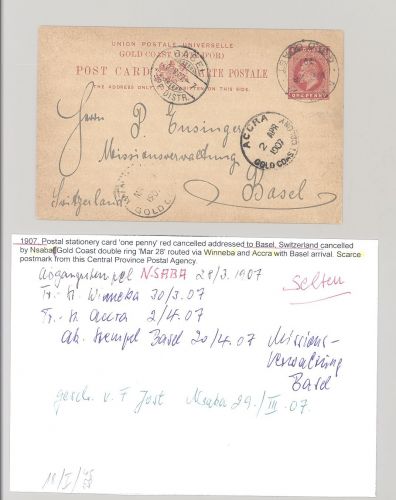 UNION POSTALE UNIVERSELLE
GOLD COAST
POST CARD CARTE POSTALE
THE ADDRESS ONLY WRITTEN ON THIS SIDE.
ONE PENNY
BASEL
DISTR.
ACCRA
2 APR
1907
GOLD COAST
Herrn P. Ensinger
Missionsverwaltung
Basel
Switzerland
GOLD C
1907. Postal stationery card 'one penny' red cancelled addressed to Basel, Switzerland cancelled
by Nsaba Gold Coast double ring 'Mar 28' routed via Winneba and Accra with Basel arrival. Scarce
postmark from this Central Province Postal Agency.
Abgangstempel NSABA 28/3.1907
Selten
Tr. St. Winneba 30/3.07
Tr. St. Accra 2/4.07
Ak. Stempel Basel 20/4.07
Missions-
verwaltung
Basel
geschr. v. F Jost Nsaba 29./III.07.